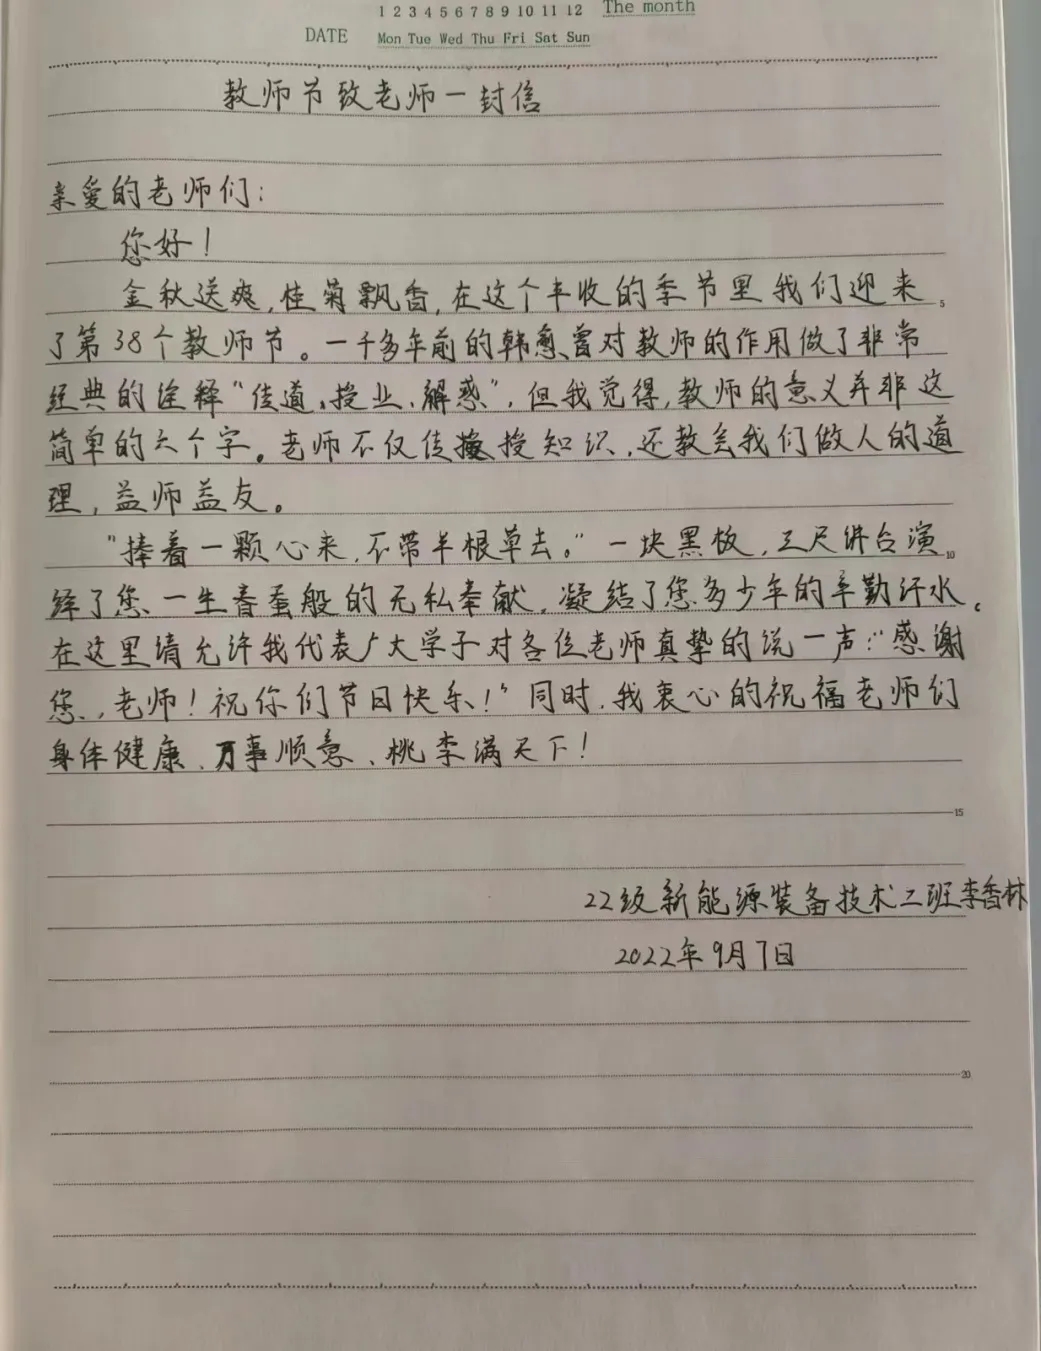 1 2 3 4 5 6 7 8 9 10 11 12 The month
DATE Mon Tue Wed Thu Fri Sat Sun
教师节致老师一封信
亲爱的老师们:
您好!
金秋送爽,桂菊飘香,在这个丰收的季节里我们迎来
5
了第38个教师节。一千多年前的韩愈、曾对教师的作用做了非常
经典的诠释“传道、授业、解惑”,但我觉得,教师的意义并非这
简单的六个字。老师不仅传授知识,还教会我们做人的道
理,益师益友。
“捧着一颗心来,不带半根草去。”一块黑板,三尺讲台演
10
绎了您、一生春蚕般的无私奉献,凝结了您多少年的辛勤汗水。
在这里请允许我代表广大学子对各位老师真挚的说一声:“感谢
您,老师!祝你们节日快乐!”同时,我衷心的祝福老师们
身体健康、万事顺意、桃李满天下!
15
22级新能源装备技术二班李香林
2022年9月7日
20